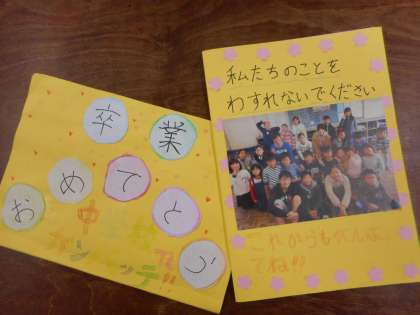 卒業
おめでとう
私たちのことを
わすれないでください
これからも
てね!!